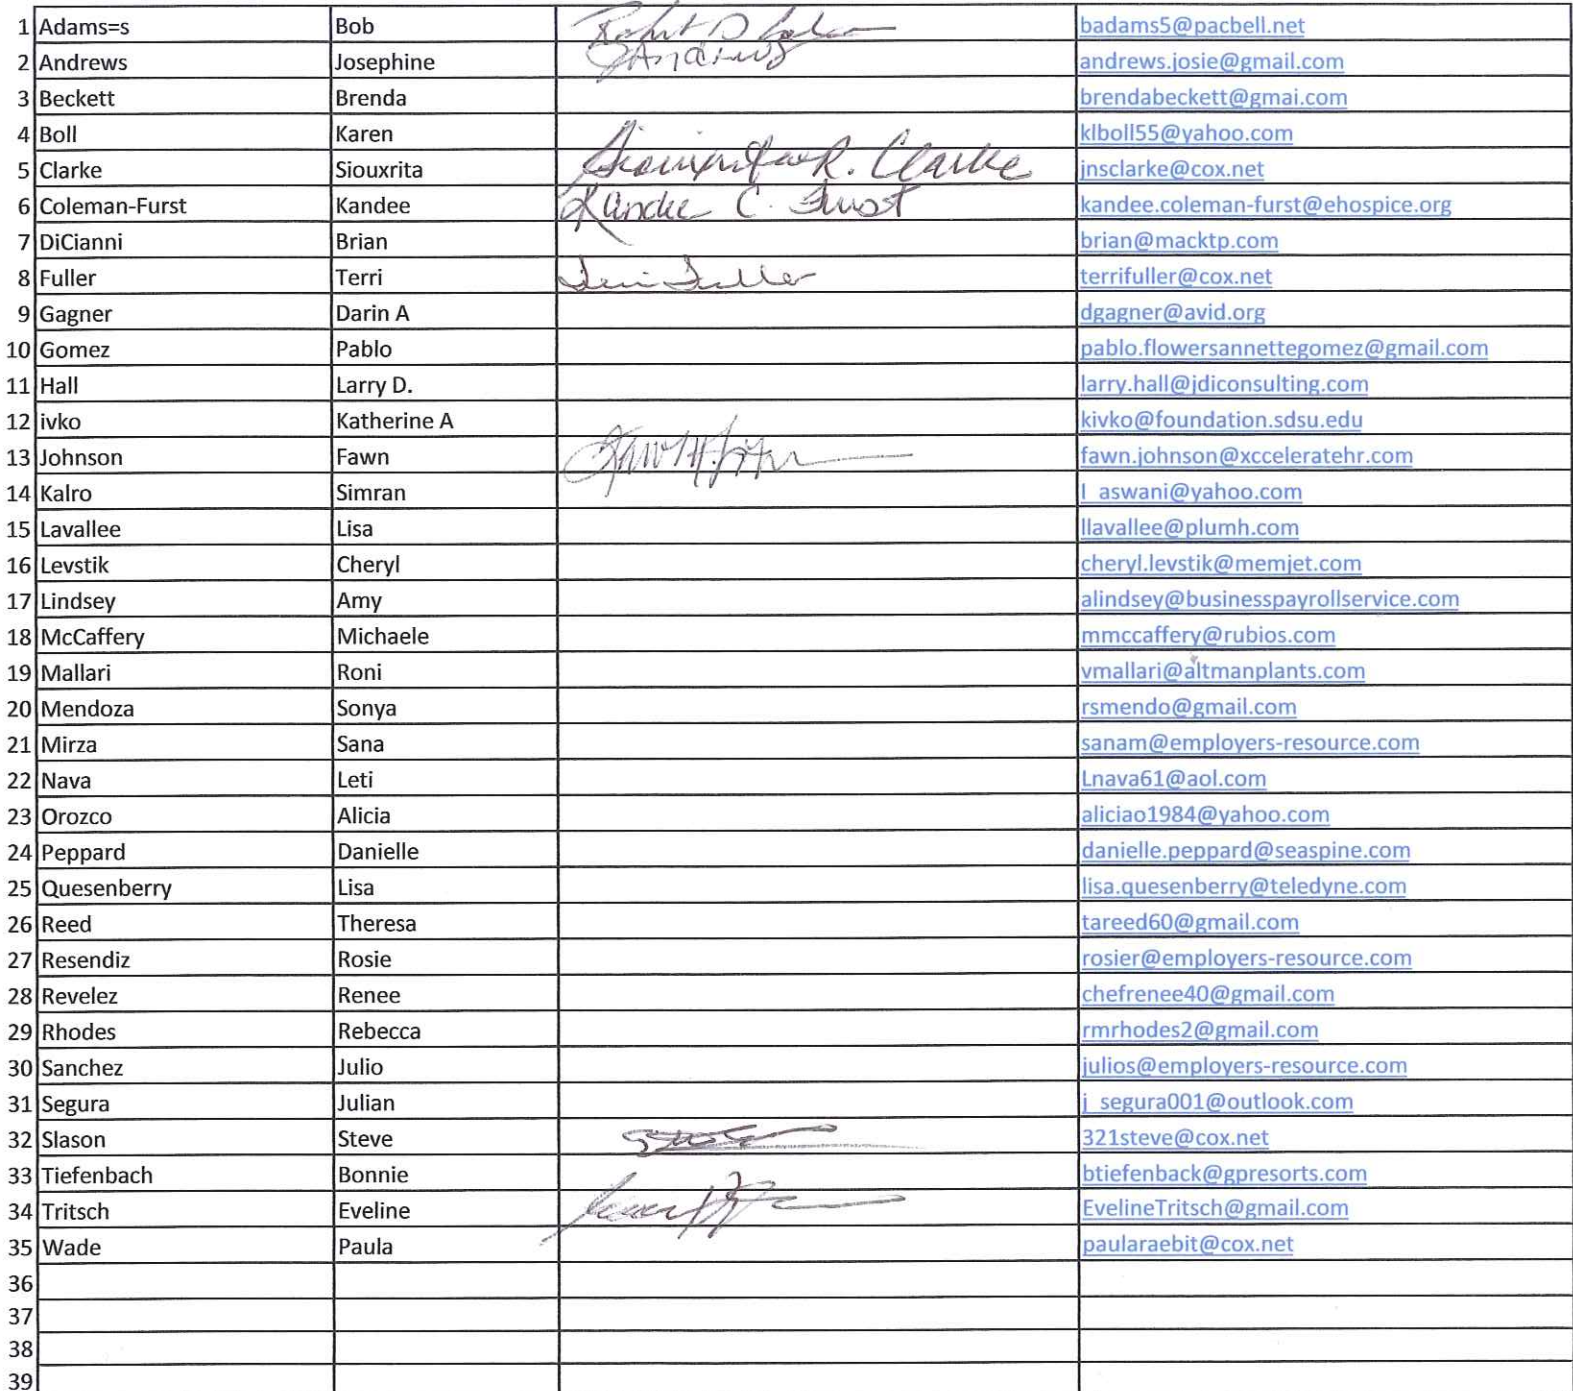 1 Adams=s Bob Robert D Adams badams5@pacbell.net
2 Andrews Josephine JAndrews andrews.josie@gmail.com
3 Beckett Brenda brendabeckett@gmai.com
4 Boll Karen klboll55@yahoo.com
5 Clarke Siouxrita Siouxrita R. Clarke jnsclarke@cox.net
6 Coleman-Furst Kandee Kandee C. Furst kandee.coleman-furst@ehospice.org
7 DiCianni Brian brian@macktp.com
8 Fuller Terri Terri Fuller terrifuller@cox.net
9 Gagner Darin A dgagner@avid.org
10 Gomez Pablo pablo.flowersannettegomez@gmail.com
11 Hall Larry D. larry.hall@jdiconsulting.com
12 ivko Katherine A kivko@foundation.sdsu.edu
13 Johnson Fawn fawn.johnson@xcceleratehr.com
14 Kalro Simran l_aswani@yahoo.com
15 Lavallee Lisa llavallee@plumh.com
16 Levstik Cheryl cheryl.levstik@memjet.com
17 Lindsey Amy alindsey@businesspayrollservice.com
18 McCaffery Michaele mmccaffery@rubios.com
19 Mallari Roni vmallari@altmanplants.com
20 Mendoza Sonya rsmendo@gmail.com
21 Mirza Sana sanam@employers-resource.com
22 Nava Leti Lnava61@aol.com
23 Orozco Alicia aliciao1984@yahoo.com
24 Peppard Danielle danielle.peppard@seaspine.com
25 Quesenberry Lisa lisa.quesenberry@teledyne.com
26 Reed Theresa tareed60@gmail.com
27 Resendiz Rosie rosier@employers-resource.com
28 Revelez Renee chefrenee40@gmail.com
29 Rhodes Rebecca rmrhodes2@gmail.com
30 Sanchez Julio julios@employers-resource.com
31 Segura Julian j_segura001@outlook.com
32 Slason Steve 321steve@cox.net
33 Tiefenbach Bonnie btiefenback@gpresorts.com
34 Tritsch Eveline EvelineTritsch@gmail.com
35 Wade Paula paularaebit@cox.net
36
37
38
39